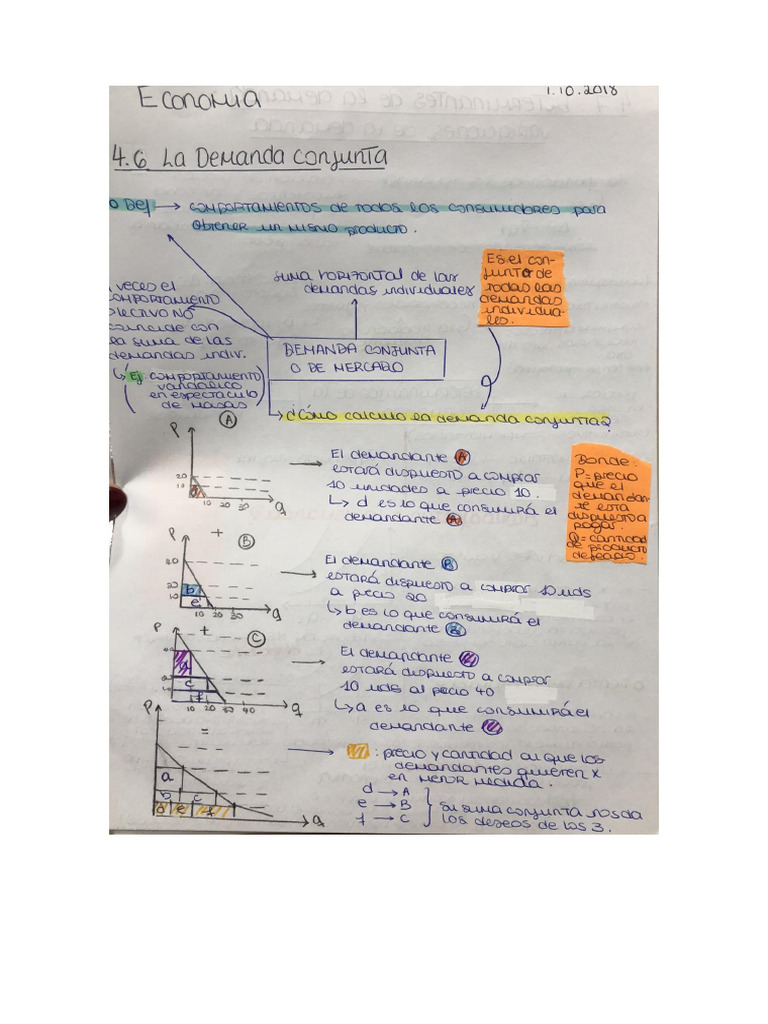 Economía
1.10.2018
4.6 La Demanda Conjunta
o Def → comportamientos de todos los consumidores para
obtener un mismo producto.
suma horizontal de las
demandas individuales
Es el con-
junto de
todas las
demandas
individua-
les.
veces el
comportamiento
olectivo NO
coincide con
la suma de las
demandas indiv.
↳ Ej comportamiento
vandálico
en espectáculo
de masas
DEMANDA CONJUNTA
O DE MERCADO
¿Cómo calculo la demanda conjunta?
P
A
20
10
d
10 20 30
q
El demandante A
estará dispuesto a comprar
10 unidades a precio 10.
↳ d es lo que consumirá el
demandante A
Donde:
P = precio
que el
demandan-
te esta
dispuesto a
pagar.
Q = cantidad
de producto
deseado.
+
P
B
20
10
b
e
10 20 30
q
El demandante B
estará dispuesto a comprar 10 uds
a pecio 20
↳ b es lo que consumirá el
demandante B
+
P
C
c
f
10 20 30 40
q
El demandante
estará dispuesto a comprar
10 uds al pecio 40
↳ a es lo que consumirá el
demandante
=
P
a
b c
d e f
q
: precio y cantidad al que los
demandantes quieren x
en menor medida.
d → A
e → B
f → C
Su suma conjunta nos da
los deseos de los 3.